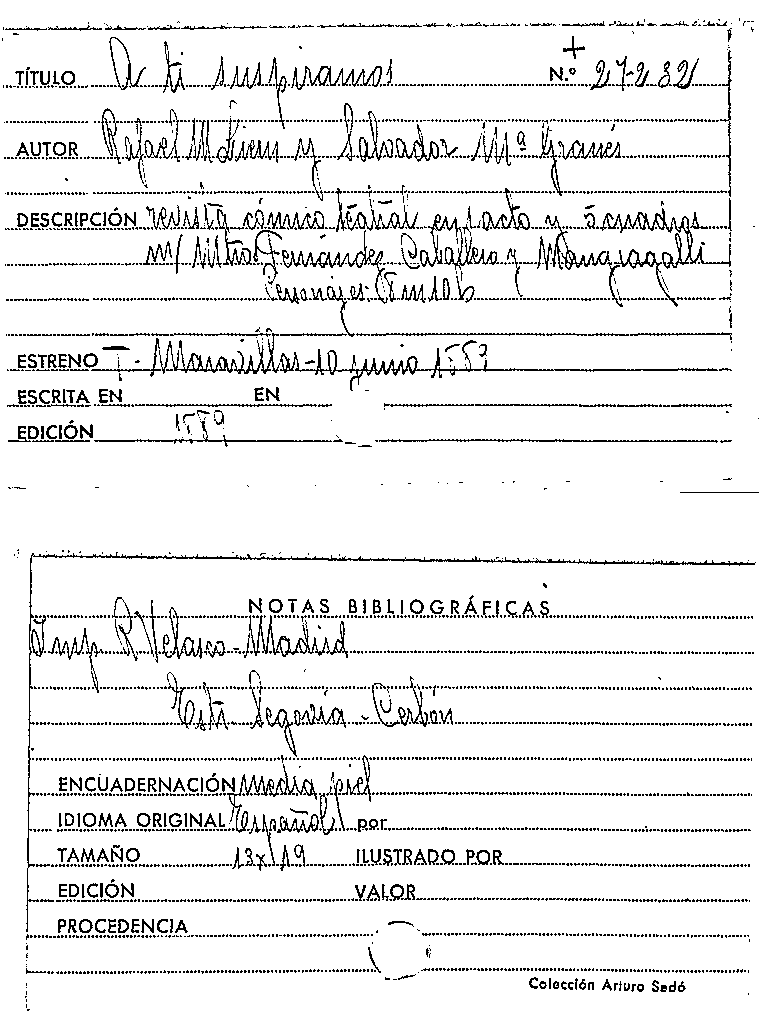 +
TÍTULO A ti suspiramos N.º 27-2 32
AUTOR Rafael M Liern y Salvador Mª Granés
DESCRIPCIÓN revista cómico teatral en 1 acto y 5 cuadros
m/ Mtros Fernández Caballero y Mangiagalli
Personajes: 18 m 10 h
ESTRENO T- Maravillas-10 junio 1889
ESCRITA EN EN
EDICIÓN 1889
NOTAS BIBLIOGRÁFICAS
Imp R Velasco-Madrid
Estr. Segovia - Cerbón
ENCUADERNACIÓN Media piel
IDIOMA ORIGINAL Español por
TAMAÑO 13x19 ILUSTRADO POR
EDICIÓN VALOR
PROCEDENCIA
Colección Arturo Sedó